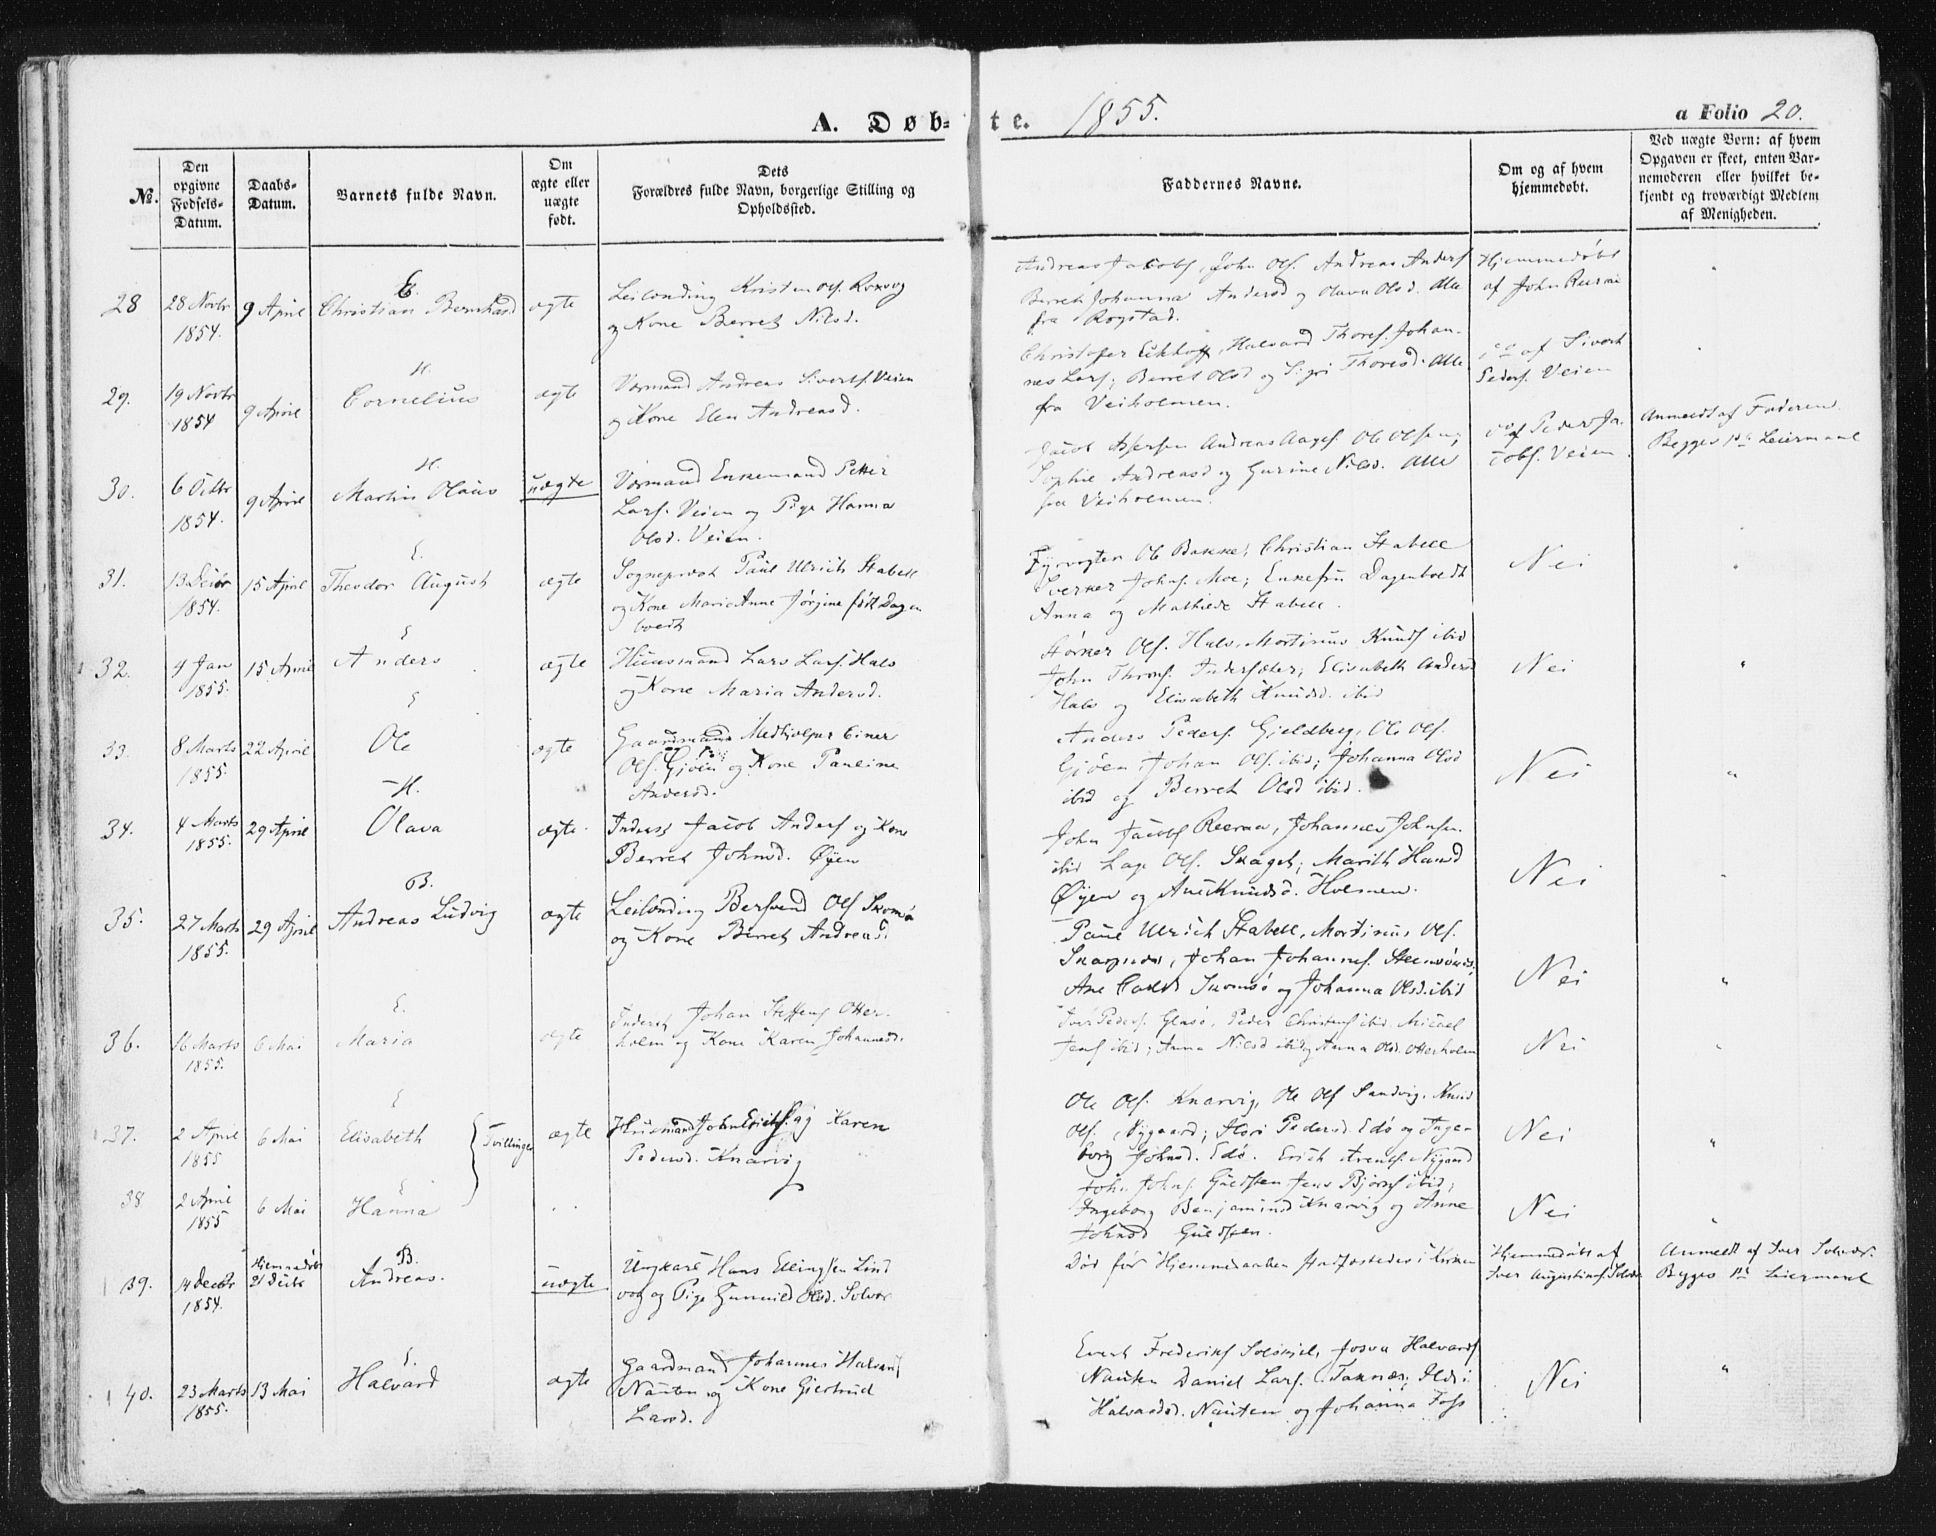 A. Døb- te. 1855.
a Folio 20.
No.
Den opgivne Fødsels-Datum.
Daabs-Datum.
Barnets fulde Navn.
Om ægte eller uægte født.
Dets Forældres fulde Navn, borgerlige Stilling og Opholdssted.
Faddernes Navne.
Om og af hvem hjemmedøbt.
Ved uægte Børn: af hvem Opgaven er skeet, enten Barnemoderen eller hvilket bekjendt og troværdigt Medlem af Menigheden.
28
28 Novbr 1854.
9 April
E.
Christian Bernhard
ægte
Leilænding Kristen Ols.
og Kone Berret Nilsd.
Andreas Jacobs, John Ols. Andreas Anders
Berret Johanna Andersd og Olava Olsd. Alle
fra Rogstad.
Hjemmedøbt
af John
29.
19 Novbr 1854
9 April
H.
Cornelius
ægte
Værmand Andreas Siverts. Veien
og Kone Elen Andreasd.
Christofer Halvard Thores. Johan-
nes Lars; Berret Olsd og Sigri Thoresd. Alle
fra Veiholmen.
af Sivert
Peders. Veien
30.
6 Octbr 1854.
9 April
H.
Martin Olaus
uægte
Værmand Enkemand Petter
Lars. Veien og Pige Hanna
Olsd. Veien.
Jacob Andreas Aages. Ole Olsen;
Sophie Andreasd og Gurine Nilsd. Alle
fra Veiholmen.
af Peder Ja-
cobs. Veien
Anmeldt af Faderen.
Begges 1ste Leiermaal
31.
13 Decbr 1854.
15 April
E.
Theodor August
ægte
Sogneprest Paul Ulrich Stabell
og Kone Marie Anne Jørgine født Dagen
boldt
Fyrvogter Ole Bakke, Christian Stabell
Sverker Johns. Moe; Enkefru Dagenboldt
Anna og Mathilde Stabell.
Nei
32.
4 Jan 1855.
15 April
E
Anders
ægte
Huusmand Lars Lars. Hals
og Kone Maria Andersd.
Størker Ols. Hals, Mortinus Knuds ibid
John Thoms. Elisabeth Andersd
Hals og Elisabeth Knudsd. ibid
Nei
"
33.
8 Marts 1855.
22 April
E
Ole
ægte
Gaardmand Medhjelper Einer
Ols. Gjøen og Kone Pauline
Andersd.
Anders Peders. Gjeldberg, Ole Ols.
Gjøen Johan Ols. ibid; Johanna Olsd
ibid og Berret Olsd ibid.
Nei
"
34.
4 Marts 1855.
29 April
H.
Olava
ægte.
Inderst Jacob Anders og Kone
Berret Johnsd. Øyen
John Jacobs Johannes Johnsen
ibid Lage Ols. Skaget; Marith Hansd
Øyen og Ane Knudsd. Holmen.
Nei
35.
27 Marts 1855.
29 April
B.
Andreas Ludvig
ægte
Leilænding Bersvend Ols Skomsø
og Kone Berret Andreasd.
Paul Ulrich Stabell, Mortinus Ols.
Skarpnes, Johan Johannes.
Ane Skomsø og Johanna Olsd. ibid
Nei
"
36.
16 Marts 1855.
6 Mai
E.
Maria
ægte
Inderst Johan Steffens Otter-
holm og Kone Karen Johannesd.
Iver Peders. Glasø, Peder Christens ibid. Micael
Jens ibid; Anna Nilsd ibid og Anna Olsd. Otterholm
Nei
"
37.
2 April 1855
6 Mai
E
Elisabeth
Tvillinger
ægte
Huusmand John Erichs. og Karen
Pedersd. Knarvig
Ole Ols. Knarvig, Ole Ols Sandvig, Knud
Ols. Nygaard; Pedersd. Edø og Inge-
borg Johnsd. Edø. Erich Arents. Nygaard
Nei
"
38
2 April 1855
6 Mai
E
Hanna
John Johns. Guldsten Jens Bjørns ibid;
Ingeborg Benjaminsd Knarvig og Anne
Johnsd Guldsten.
Nei
"
39.
14 Decbr 1854.
Hjemmedøbt
21 Decbr
B.
Andreas.
uægte
Ungkarl Hans Ellingsen Lind
vog og Pige Gunnild Olsd. Solvor
Død før Hjemmedaaben stadfæstedes i Kirken
Hjemmedøbt af
Iver Augustinus.
Anmeldt af Iver
Begges 1ste Leiermaal
40.
23 Marts 1855.
13 Mai
E.
Halvard
ægte
Gaardmand Johannes Halvards
Nausten og Kone Giertrud
Larsd.
Evert Frederiks Solskjel, Josva Halvards
Nausten Daniel Lars. Taknæs;
Halvardsd. Nausten og Johanna Foss
Nei
"